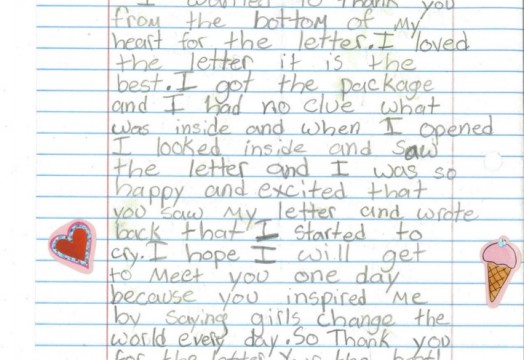 I wanted to thank you
from the bottom of my
heart for the letter.I loved
the letter it is the
best.I got the package
and I had no clue what
was inside and when I opened
I looked inside and saw
the letter and I was so
happy and excited that
you saw my letter and wrote
back that I started to
cry.I hope I will get
to meet you one day
because you inspired me
by saying girls change the
world every day.So Thank you
for the letter